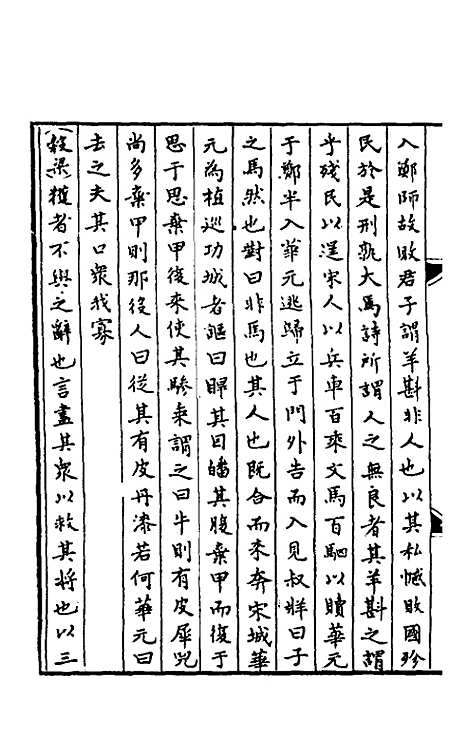 入鄭師故敗君子謂羊斟非人也以其私憾敗國殄
民於是刑孰大焉詩所謂人之無良者其羊斟之謂
乎殘民以逞宋人以兵車百乘文馬百駟以贖華元
于鄭半入華元逃歸立于門外告而入見叔牂曰子
之馬然也對曰非馬也其人也既合而來奔宋城華
元為植巡功城者謳曰睅其目皤其腹棄甲而復于
思于思棄甲復來使其驂乘謂之曰牛則有皮犀兕
尚多棄甲則那役人曰從其有皮丹漆若何華元曰
去之夫其口眾我寡
穀梁獲者不與之辭也言盡其眾以救其將也以三